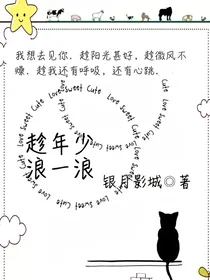 我想去见你，趁阳光甚好，趁微风不
噪，趁我还有呼吸，还有心跳.
Love Sweet Cute Love Sweet Cute Love Sweet Cute
趁年少
浪一浪
银月影城◎著